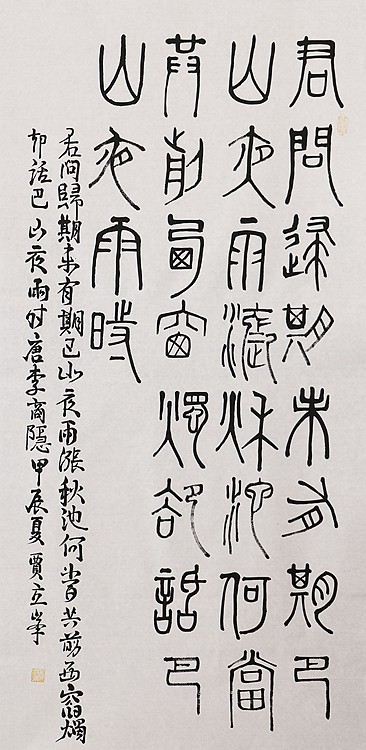 君問歸期未有期巴
山夜雨漲秋池何當
共剪西窗燭卻話巴
山夜雨時
君问歸期未有期巴山夜雨漲秋池何當共剪西窗燭
却話巴山夜雨时唐李商隐甲辰夏賈立峯